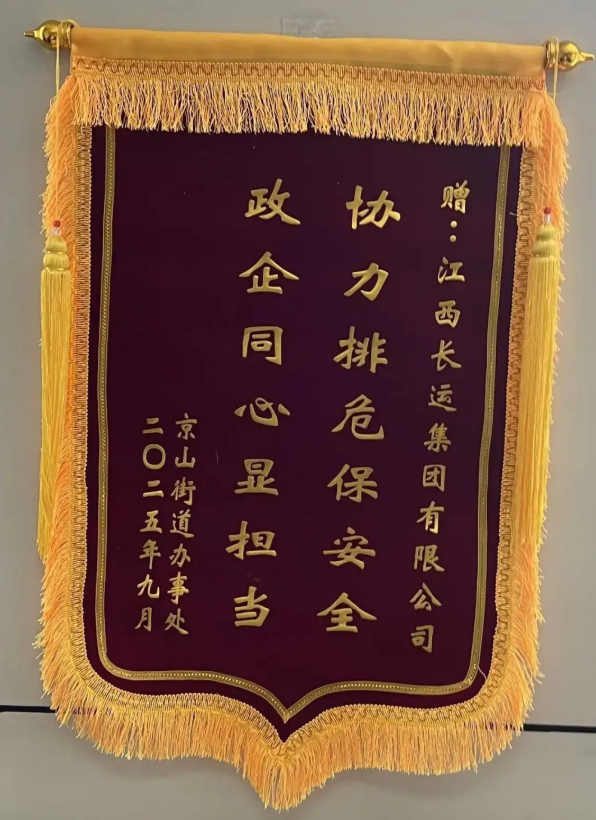 赠：江西长运集团有限公司
协力排危保安全
政企同心显担当
京山街道办事处
二〇二五年九月